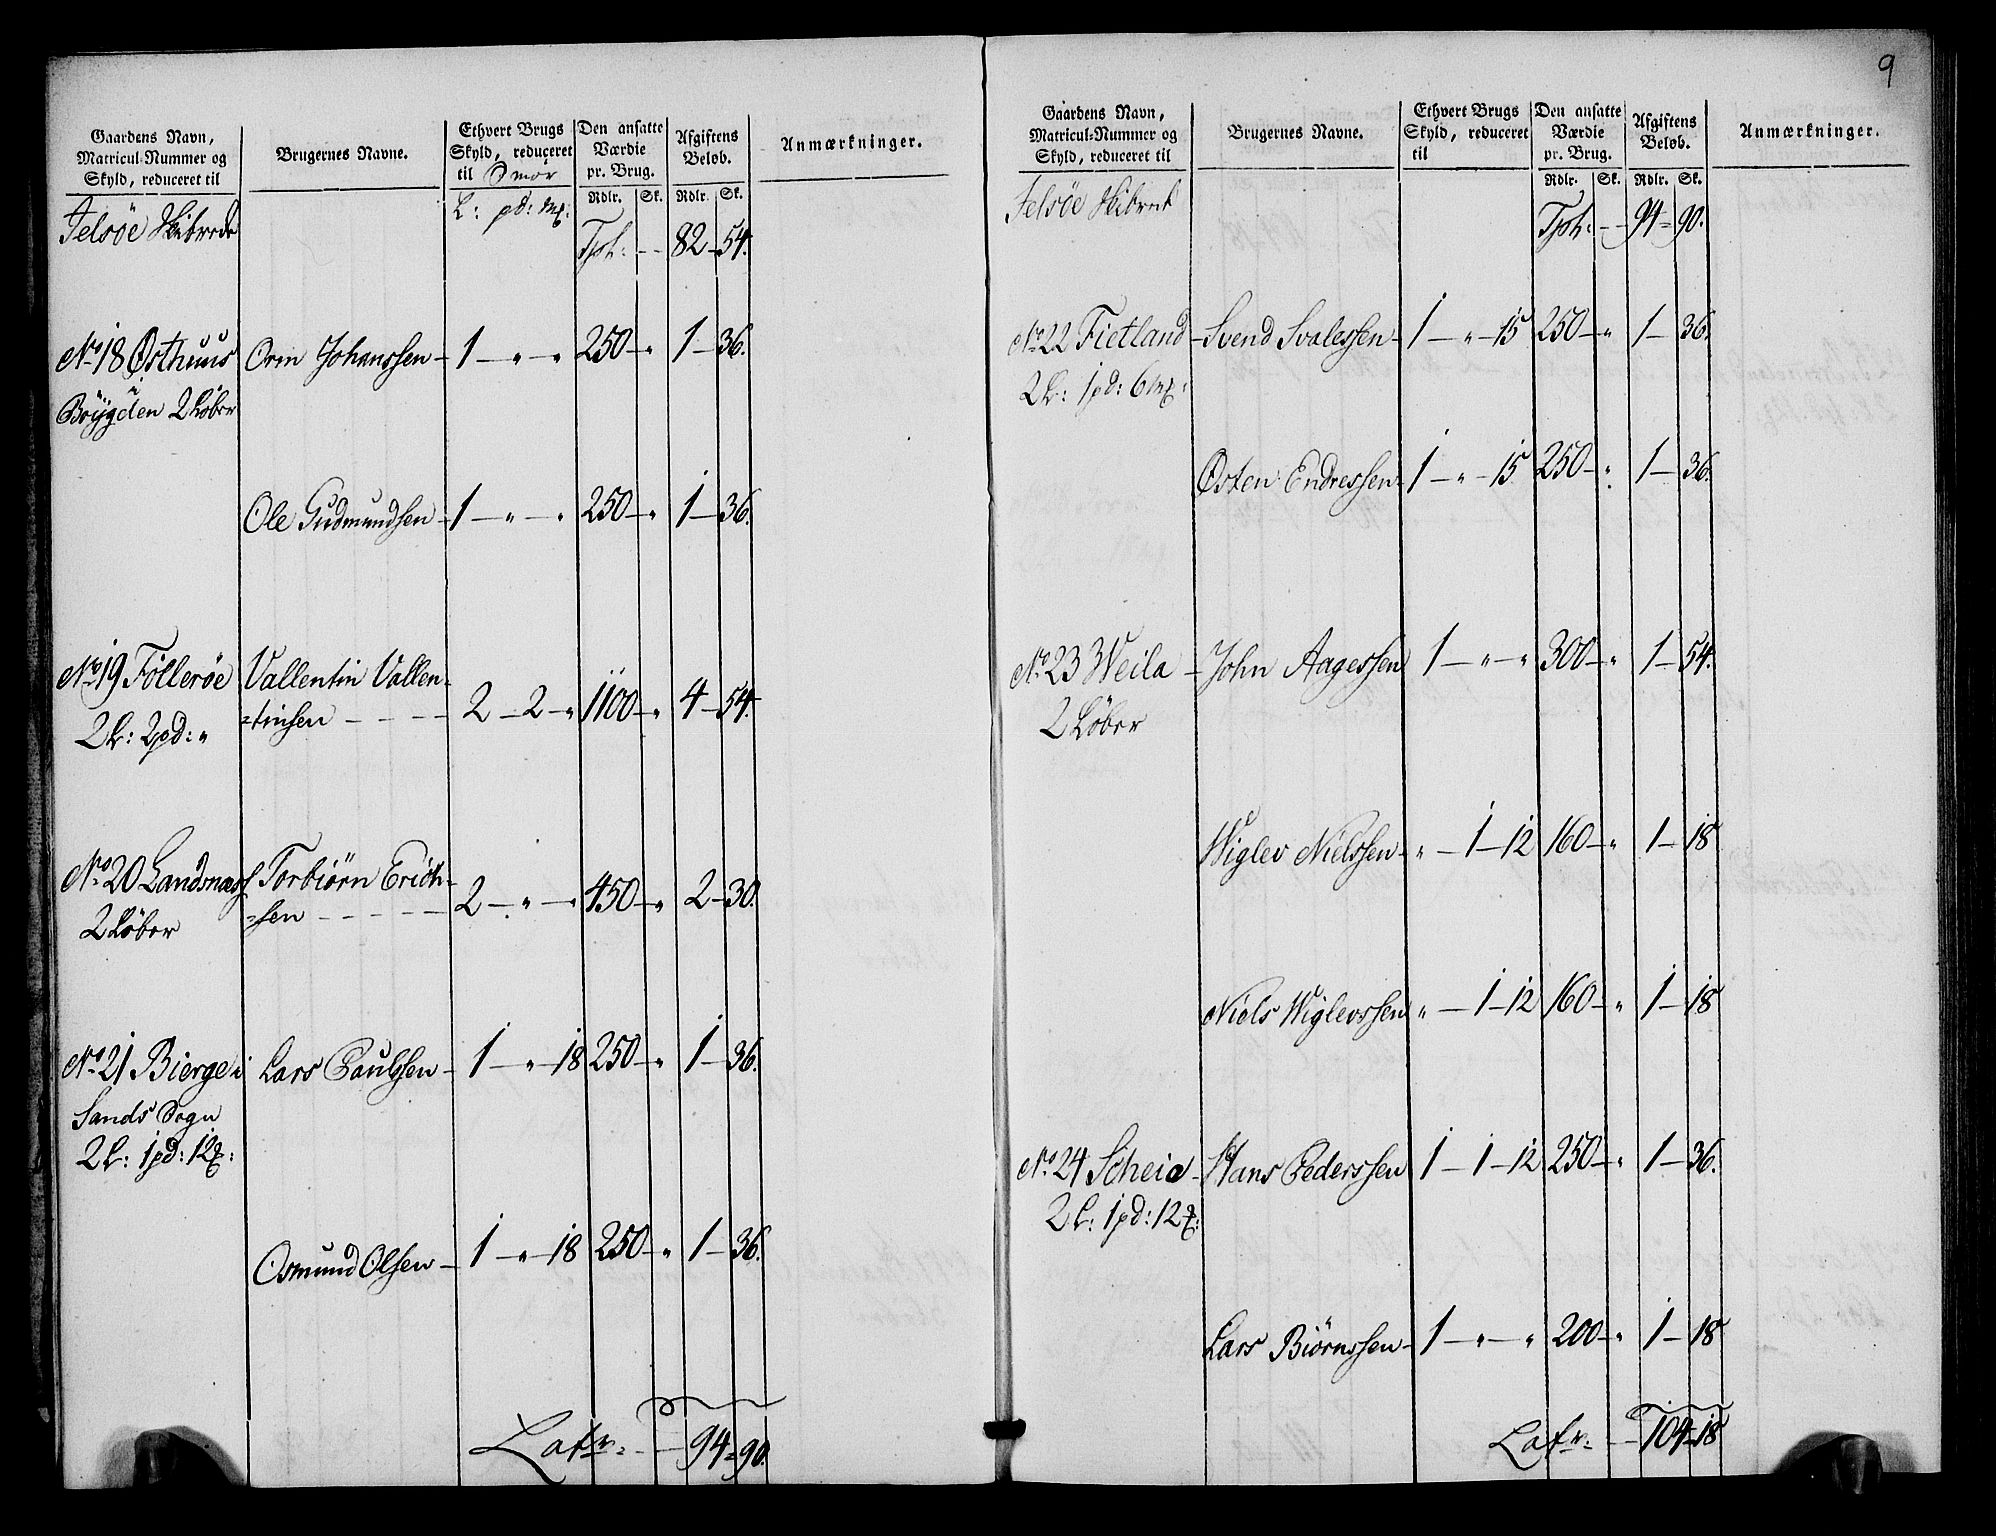 Gaardens Navn,
Matricul-Nummer og
Skyld, reduceret til
Brugernes Navne.
Ethvert Brugs
Skyld, reduceret
til Smør
Den ansatte
Værdie
pr. Brug.
Afgiftens
Beløb.
Anmærkninger.
Rdlr. Sk. Rdlr. Sk.
Jelsöe Skibrede
L: pd: Mk:
Tpt: -- 82 - 54.
No 18 Østhuus Orm Johanssen - 1 - " - " 250 - " 1 - 36.
i
Böygden 2 Løber
Ole Gudmundsen - 1 - " - " 250 - " 1 - 36.
No 19 Föllerøe Vallentin Vallen-
2 L: 2 pd: " =tinsen - - - - 2 - 2 - " 1100 - " 4 - 54.
No 20 Landsnæss Torbiörn Erich-
2 Løber =sen - - - - - 2 - " - " 450 - " 2 - 30.
No 21 Bierge i Lars Paulssen - 1 - " - 18 250 - " 1 - 36.
Sands Sogn
2 L: 1 pd: 12 :
Osmund Olsen - 1 - " - 18 250 - " 1 - 36.
Latr: - - 94 = 90.
9
Gaardens Navn,
Matricul-Nummer og
Skyld, reduceret til
Brugernes Navne.
Ethvert Brugs
Skyld, reduceret
til
Den ansatte
Værdie
pr. Brug.
Afgiftens
Beløb.
Anmærkninger.
Rdlr. Sk. Rdlr. Sk.
Jelsöe Skibred
Tpt: -- 94 = 90.
No 22 Fietland - Svend Svalessen - 1 - " - 15 250 - " 1 - 36.
2 L: 1 pd: 6 Mk:
Østen Endressen - 1 - " - 15 250 - " 1 - 36.
No 23 Weila - John Aagessen 1 - " - " 300 - " 1 - 54.
2 Løber
Wiglev Nielssen - " - 1 - 12 160 - " 1 - 18
Niels Wiglevssen " - 1 - 12 160 - " 1 - 18
No 24 Scheie - Hans Pederssen 1 - 1 - 12 250 - " 1 - 36.
2 L: 1 pd: 12 :
Lars Biörnssen - 1 - " - " 200 - " 1 - 18
Latr: - - 104 = 18